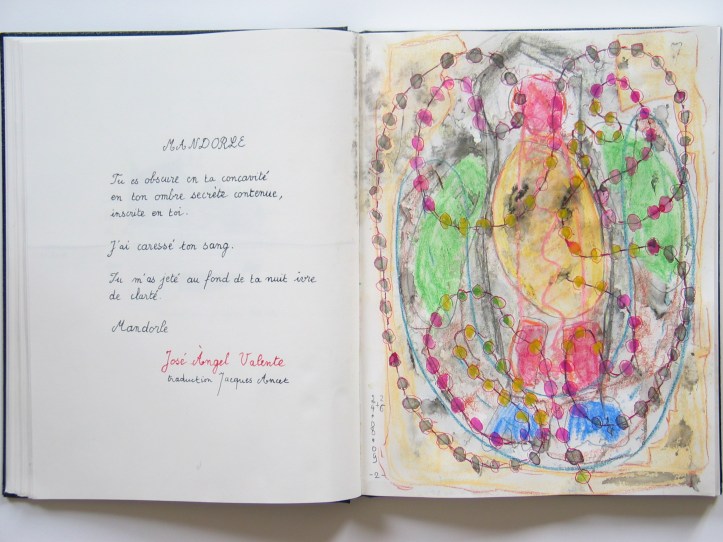 MANDORLE
Tu es obscure en ta concavité
en ton ombre secrète contenue,
inscrite en toi.
J'ai caressé ton sang.
Tu m'as jeté au fond de ta nuit ivre
de clarté.
Mandorle
José Àngel Valente
traduction Jacques Ancet
-2-